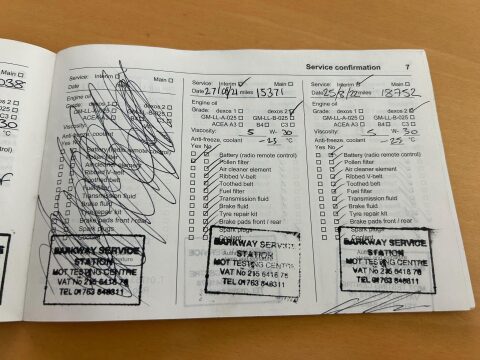 Service confirmation 7
Main
038
dexos 2
30
°C
Service: Interim Main
Date miles
Engine oil
Grade: dexos 1 dexos 2
GM-LL-A-025 GM-LL-B-025
ACEA A3 B4 C3
Viscosity: W-
Anti-freeze, coolant °C
Yes No
Battery (radio remote control)
Pollen filter
Air cleaner element
Ribbed V-belt
Toothed belt
Fuel filter
Transmission fluid
Brake fluid
Tyre repair kit
Brake pads front / rear
Spark plugs
BARKWAY SERVICE
STATION
MOT TESTING CENTRE
VAT No 215 6418 78
TEL 01763 848311
Service: Interim Main
Date 27/08/21 miles 15371
Engine oil
Grade: dexos 1 dexos 2
GM-LL-A-025 GM-LL-B-025
ACEA A3 B4 C3
Viscosity: 5 W- 30
Anti-freeze, coolant -25 °C
Yes No
Battery (radio remote control)
Pollen filter
Air cleaner element
Ribbed V-belt
Toothed belt
Fuel filter
Transmission fluid
Brake fluid
Tyre repair kit
Brake pads front / rear
Spark plugs
BARKWAY SERVICE
STATION
MOT TESTING CENTRE
VAT No 215 6418 78
TEL 01763 848311
Service: Interim Main
Date 25/8/22 miles 18752
Engine oil
Grade: dexos 1 dexos 2
GM-LL-A-025 GM-LL-B-025
ACEA A3 B4 C3
Viscosity: 5 W- 30
Anti-freeze, coolant -25 °C
Yes No
Battery (radio remote control)
Pollen filter
Air cleaner element
Ribbed V-belt
Toothed belt
Fuel filter
Transmission fluid
Brake fluid
Tyre repair kit
Brake pads front / rear
Spark plugs
BARKWAY SERVICE
STATION
MOT TESTING CENTRE
VAT No 215 6418 78
TEL 01763 848311